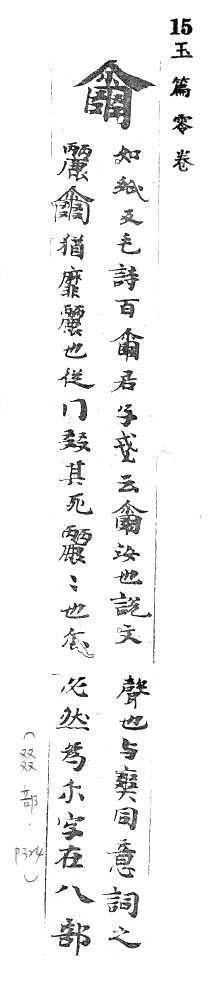 15 玉篇零卷
爾
如紙反毛詩百爾君子箋云爾汝也說文
麗爾猶靡麗也從冂㸚其孔麗〻也尒
聲也与爽同意詞之
必然為尒字在八部
(叕部．P324)